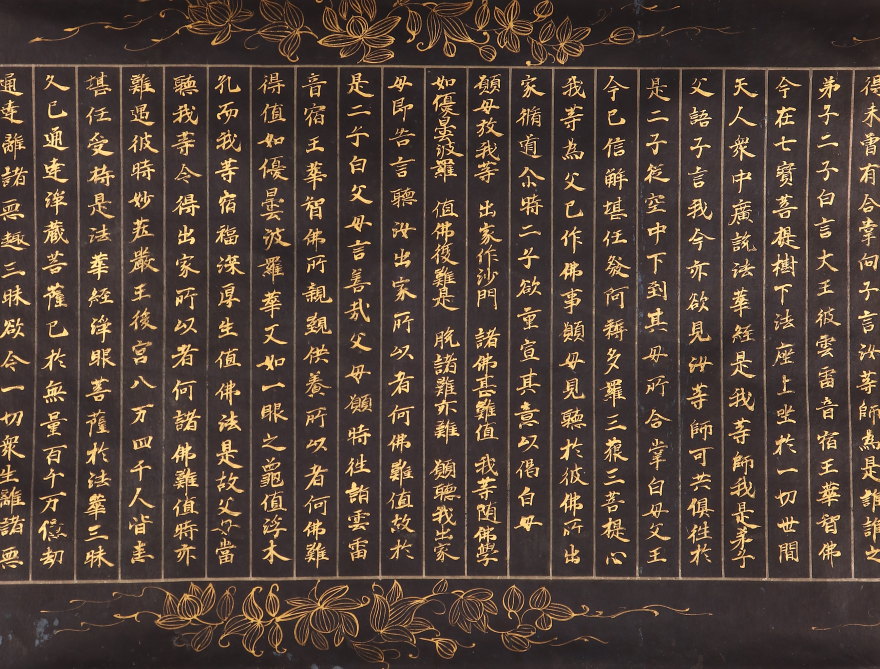 得未曾有合掌向子言汝等師為是誰誰之
弟子二子白言大王彼雲雷音宿王華智佛
今在七寶菩提樹下法座上坐於一切世間
天人衆中廣說法華経是我等師我是弟子
父語子言我今亦欲見汝等師可共俱往於
是二子従空中下到其母所合掌白母父王
今已信解堪任發阿耨多羅三藐三菩提心
我等為父已作佛事願母見聽於彼佛所出
家脩道尒時二子欲重宣其意以偈白母
願母放我等　出家作沙門　諸佛甚難値　我等随佛學
如優曇波羅　值佛復難是　脫諸難亦難　願聽我出家
母即告言聽汝出家所以者何佛難值故於
是二子白父母言善哉父母願時往詣雲雷
音宿王華智佛所親覲供養所以者何佛難
得值如優曇波羅華又如一眼之龜值浮木
孔而我等宿福深厚生值佛法是故父母當
聽我等令得出家所以者何諸佛難值時亦
難遇彼時妙莊嚴王後宮八万四千人皆悉
堪任受持是法華經淨眼菩薩於法華三昧
久已通達淨藏菩薩已於無量百千万億劫
通達離諸惡趣三昧欲令一切衆生離諸惡